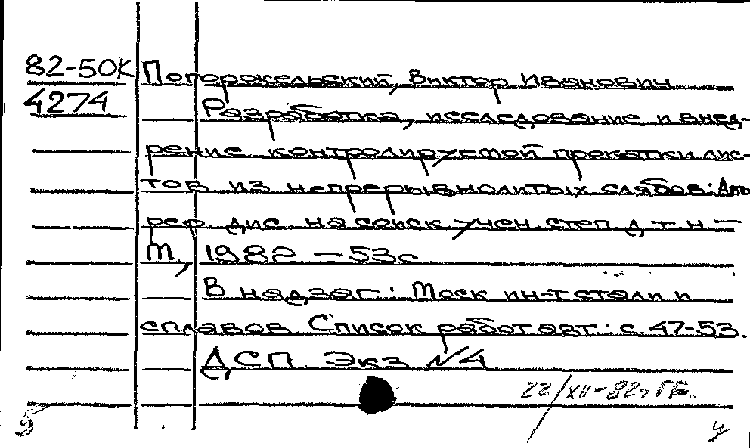 82-50К Погоржельский, Виктор Иванович
4274 Разработка, исследование и внед-
рение контролируемой прокатки лис-
тов из непрерывнолитых слябов: Авто
реф. дис. на соиск. учен. степ. д. т. н. —
М, 1982 — 53с
В надзаг.: Моск ин-т стали и
сплавов Список работ авт.: с. 47-53.
ДСП Экз №4
22/XII-82г